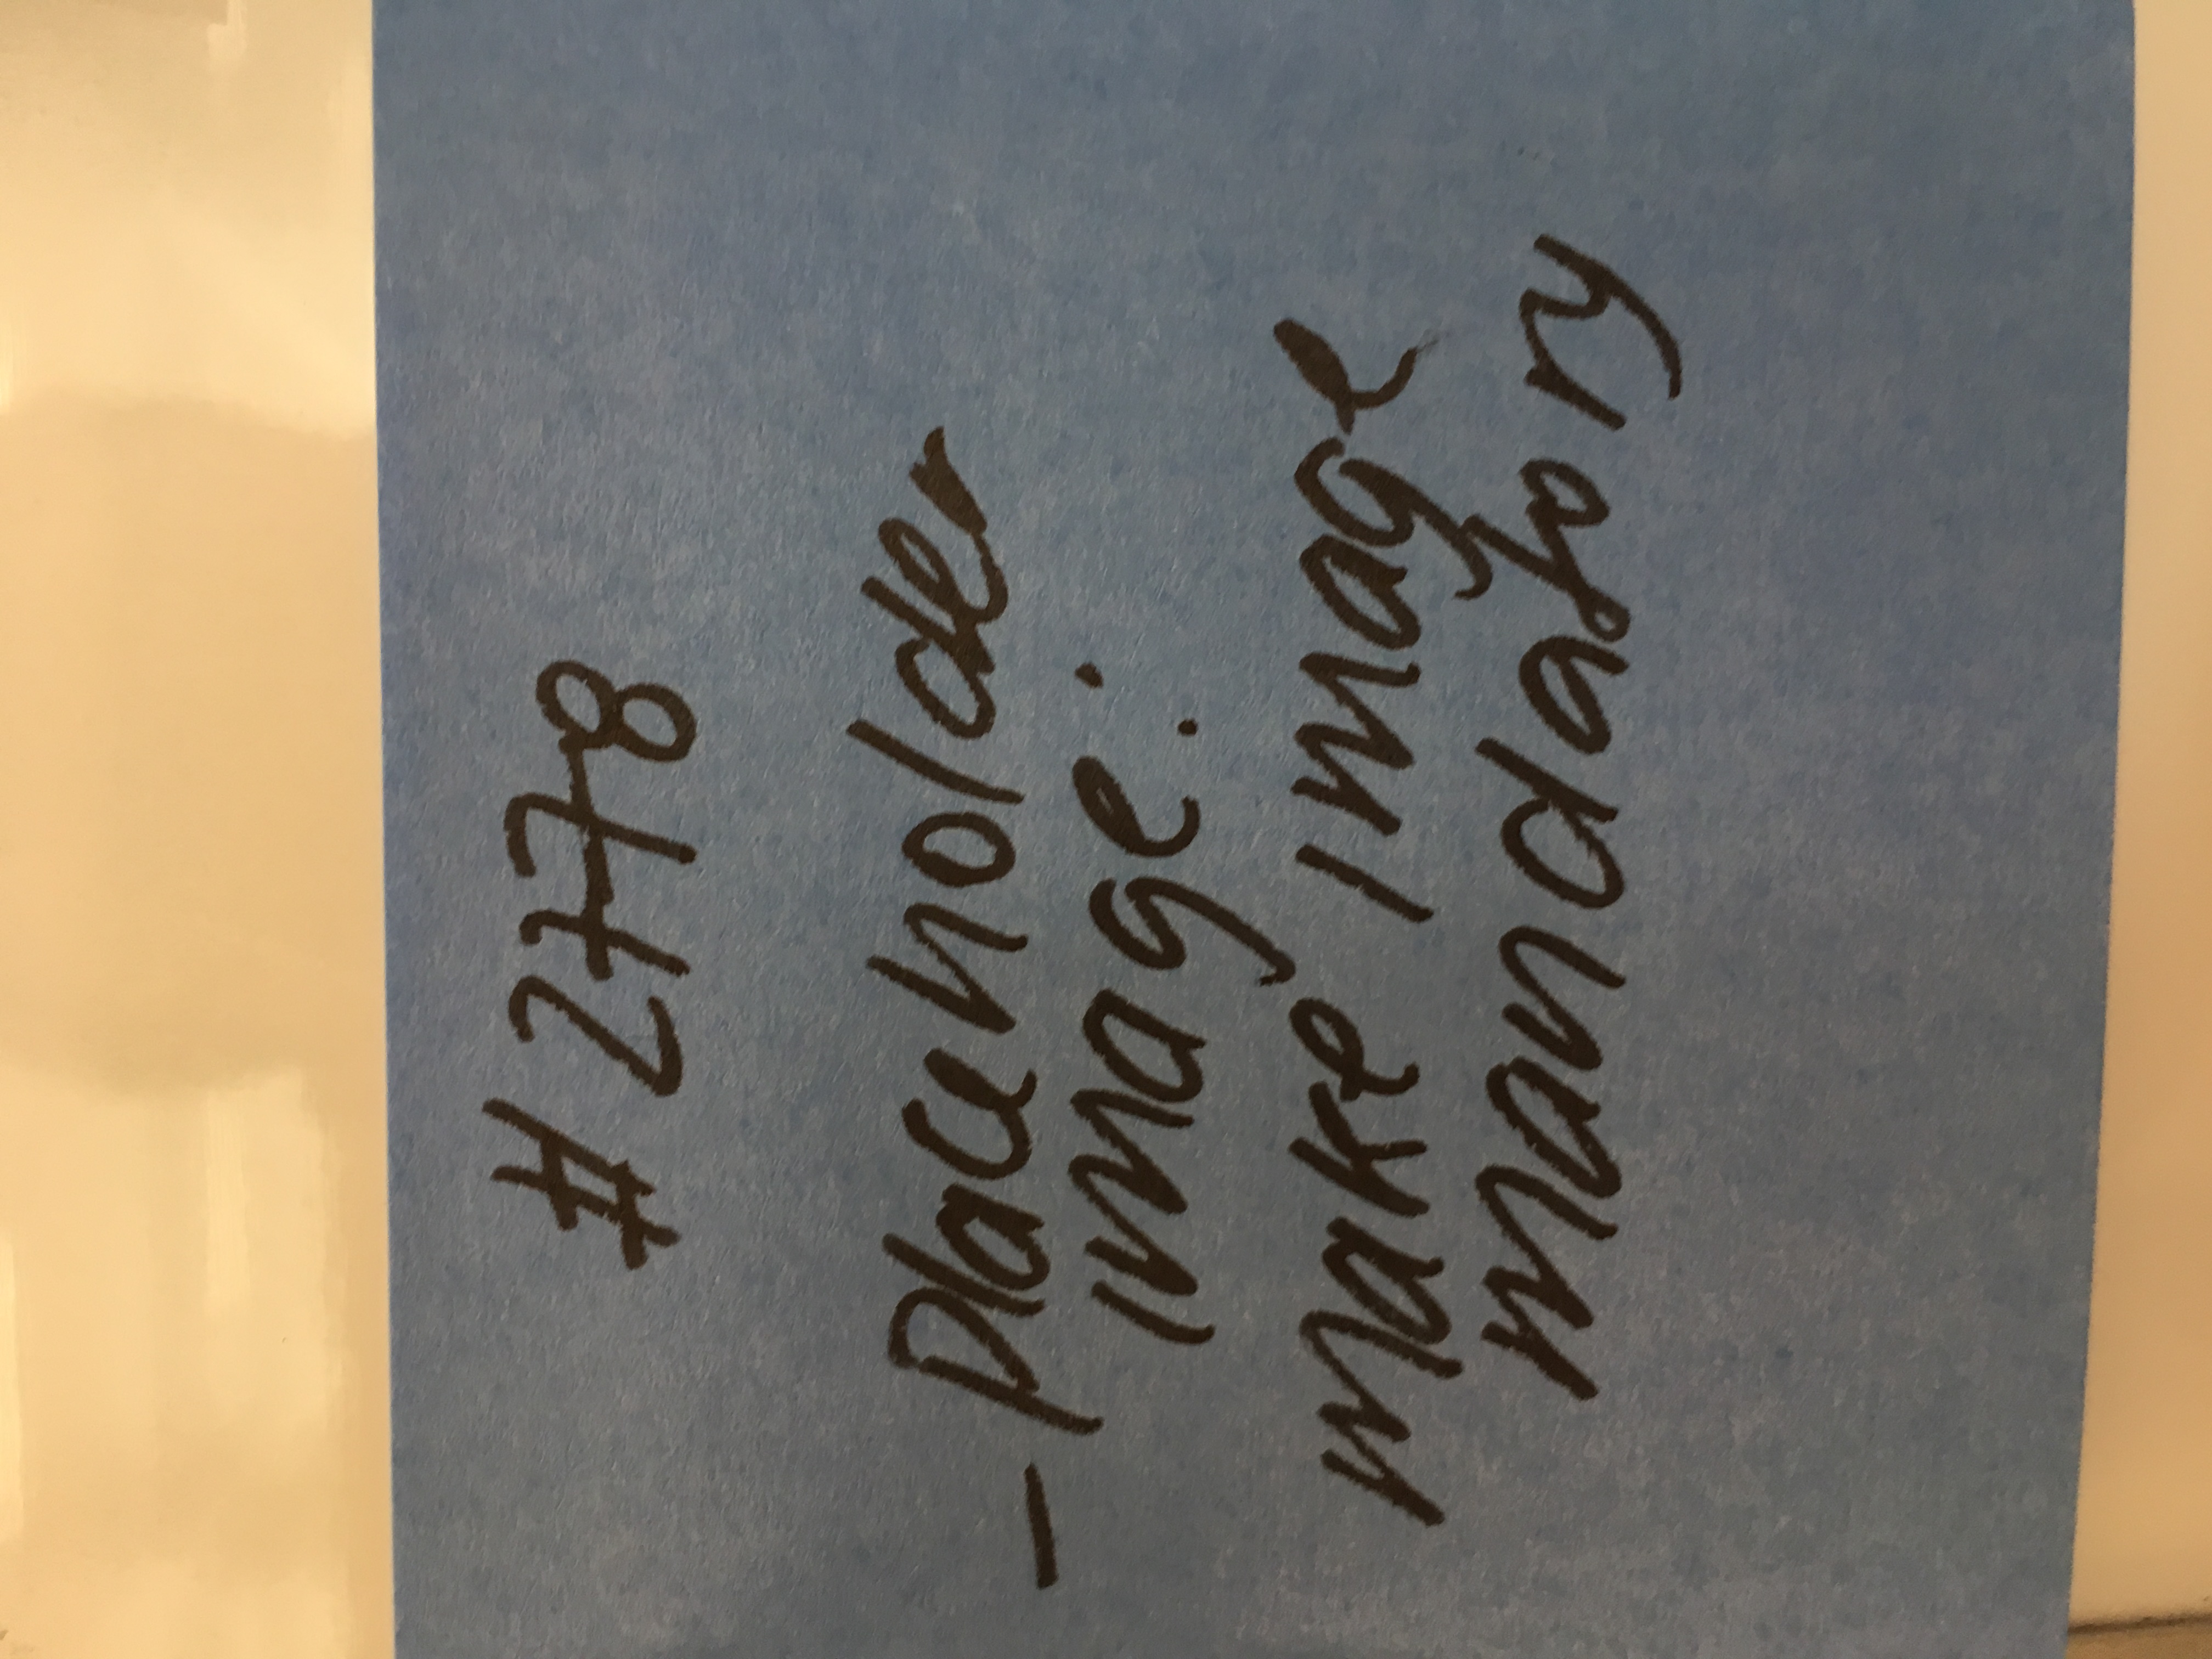 #2778
- Placeholder
image:
make image
mandatory